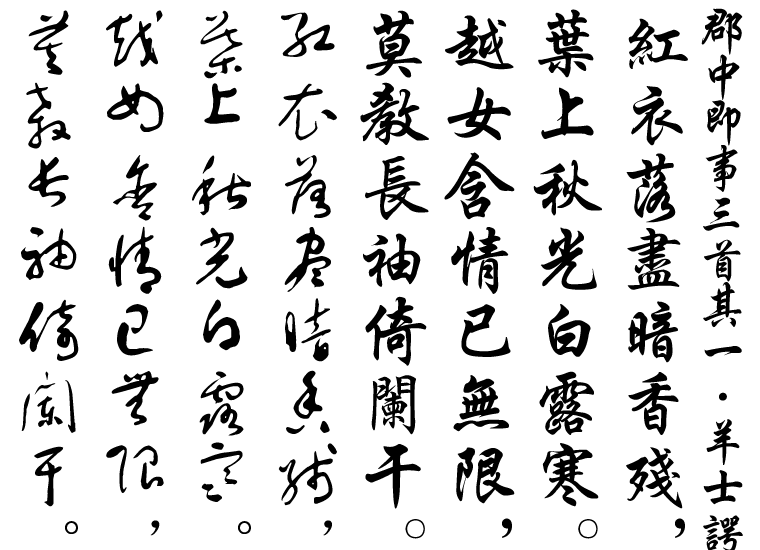 郡中即事三首其一·羊士諤
紅衣落盡暗香殘，
葉上秋光白露寒。
越女含情已無限，
莫教長袖倚闌干。
紅衣落盡暗香殘，
葉上秋光白露寒。
越女含情已無限，
莫教長袖倚闌干。